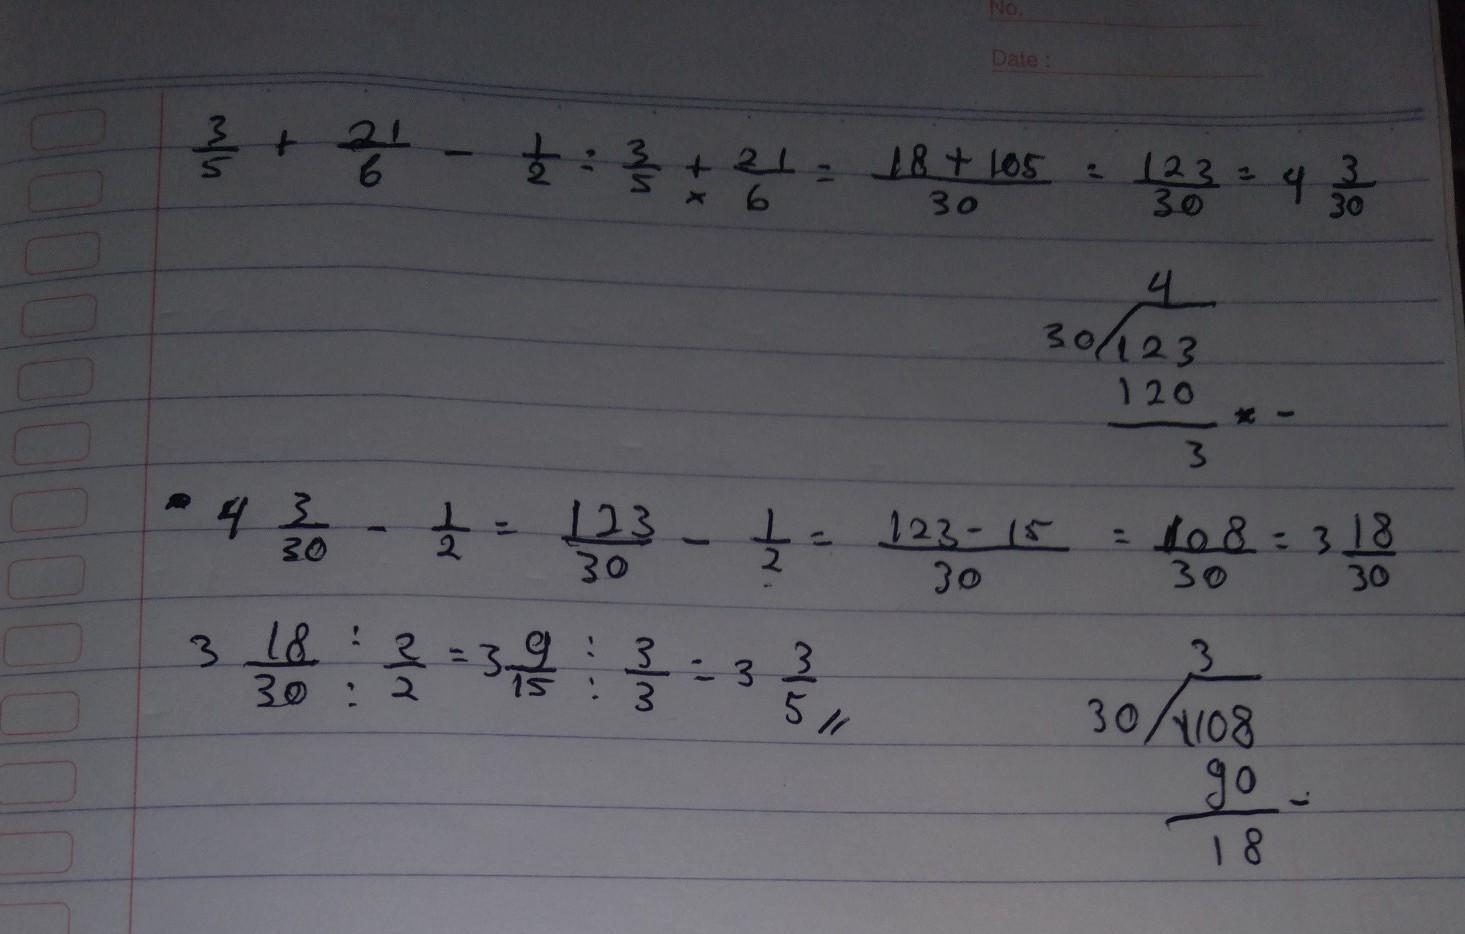 No.
Date :
3/5 + 21/6 - 1/2 = 3/5 + × 21/6 = (18 + 105)/30 = 123/30 = 4 3/30
4
30/123
120
× -
3
4 3/30 - 1/2 = 123/30 - 1/2 = (123 - 15)/30 = 108/30 = 3 18/30
3 18/30 : : 2/2 = 3 9/15 : : 3/3 = 3 3/5 //
3
30/108
90 -
18